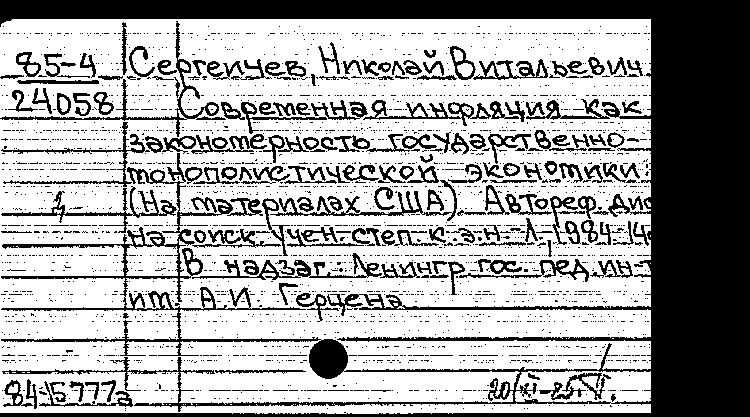 85-4 Сергеичев, Николай Витальевич
24058 Современная инфляция как
закономерность государственно-
монополистической экономики:
(На материалах США) Автореф. дис
на соиск. учен. степ. к.э.н. - Л., 1984.
В надзаг.: Ленингр. гос. пед. ин-т
им. А.И. Герцена
84-15777а